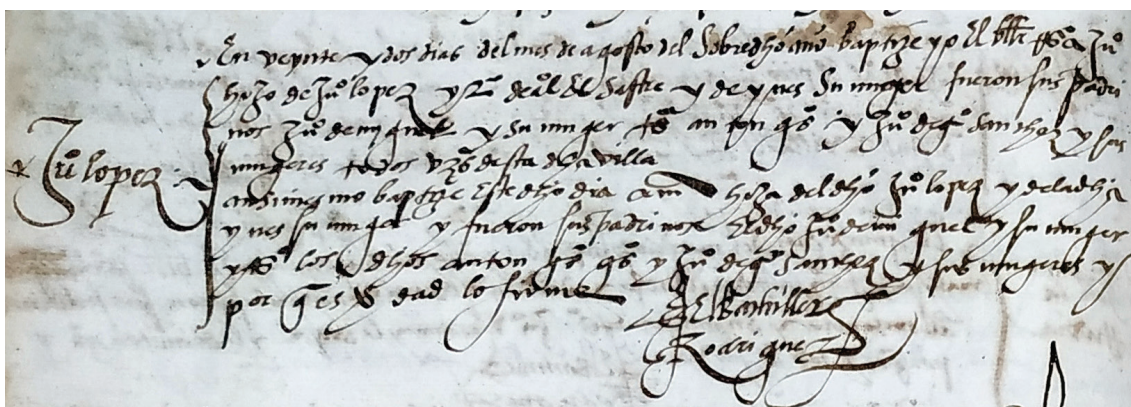 En veynte y dos dias del mes de agosto del sobredho año baptize yo El bller a Juº
hijo de Juº lopez y de El sastre y de ynes su muger fueron sus padri
nos Juº de miguel y su muger tºs anton gºs y Juº de gº sanchez y sus
mugeres todos vzºs desta dha villa
Juº lopez
ansimesmo baptize este dho dia a hija del dho Juº lopez y de la dha
ynes su muger y fueron sus padrinos El dho Juº de miguel y su muger
y tºs los dhos anton gºs y Juº de gº sanchez y sus mugeres y
por q es vdad lo firme
El bachiller
Rodriguez